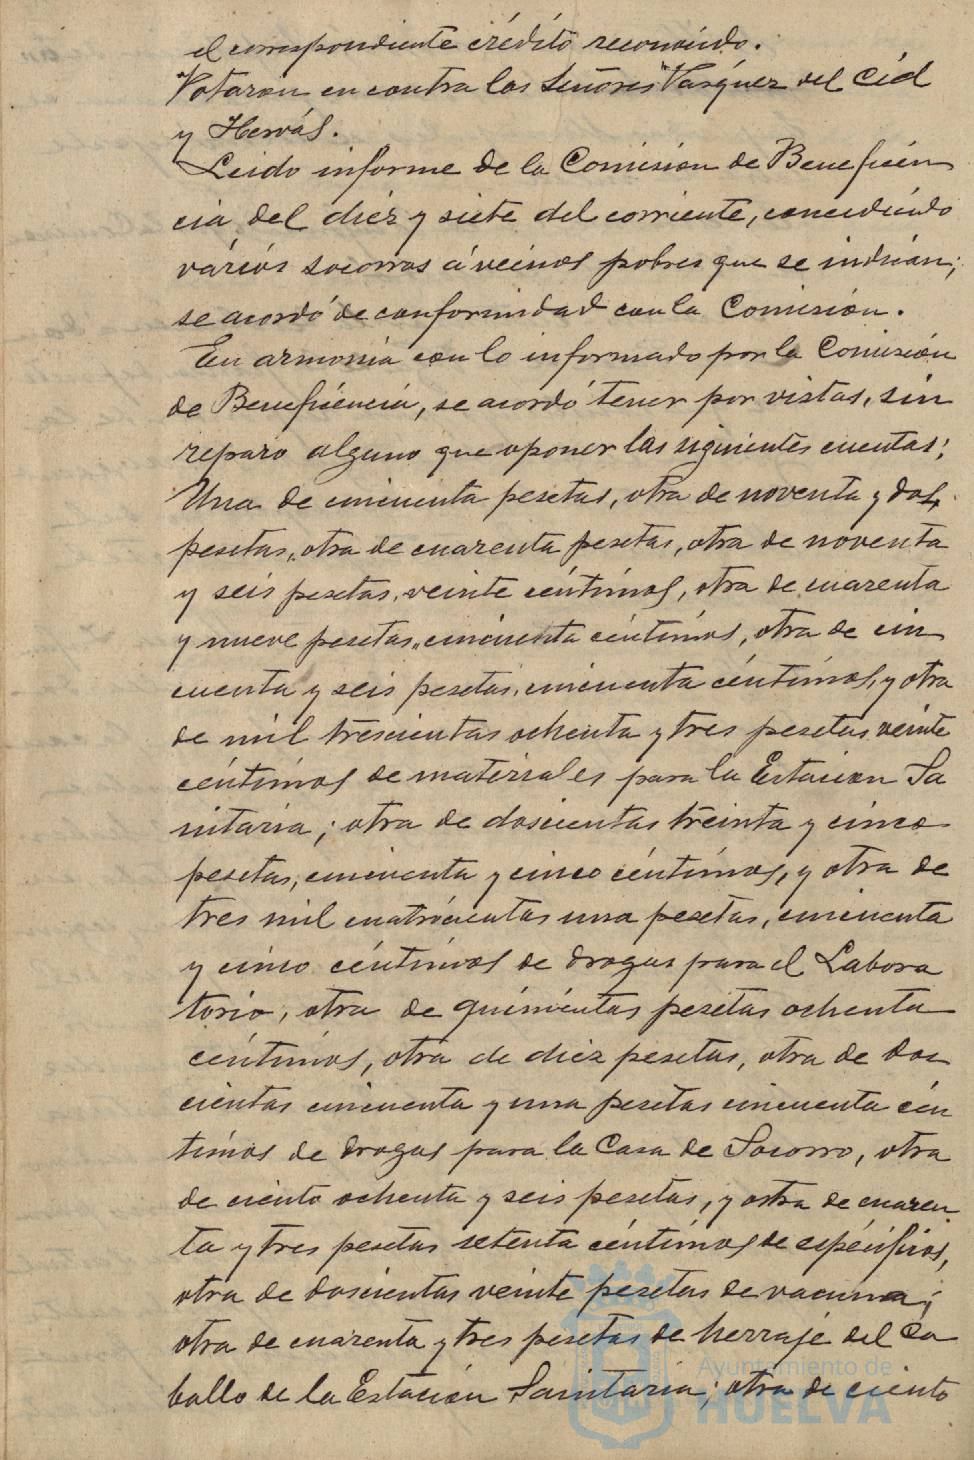 el correspondiente crédito reconocido.
Votaron en contra los Señores Vázquez del Cid
y Hervás.
Leido informe de la Comision de Beneficén
cia del diez y siete del corriente, concediendo
vários socorros á vecinos pobres que se indican;
se acordó de conformidad con la Comisión.
En armonia con lo informado por la Comisión
de Beneficéncia, se acordó tener por vistas, sin
reparo alguno que oponer las siguientes cuentas:
Una de cincuenta pesetas, otra de noventa y dos
pesetas, otra de cuarenta pesetas, otra de noventa
y seis pesetas, veinte céntimos, otra de cuarenta
y nueve pesetas, cincuenta céntimos, otra de cin
cuenta y seis pesetas, cincuenta céntimos, y otra
de mil trescientas ochenta y tres pesetas veinte
céntimos de materiales para la Estacion Sa
nitaria; otra de doscientas treinta y cinco
pesetas, cincuenta y cinco céntimos, y otra de
tres mil cuatrocientas una pesetas, cincuenta
y cinco céntimos de drogas para el Labora
torio, otra de quinientas pesetas ochenta
céntimos, otra de diez pesetas, otra de dos
cientas cincuenta y una pesetas cincuenta cén
timos de drogas para la Casa de Socorro, otra
de ciento ochenta y seis pesetas, y ostra de cuaren
ta y tres pesetas setenta céntimos de espécificos,
otra de doscientas veinte pesetas de vacuna;
otra de cuarenta y tres pesetas de herraje del Ca
ballo de la Estación Sanitaria; otra de ciento
Ayuntamiento de
HUELVA